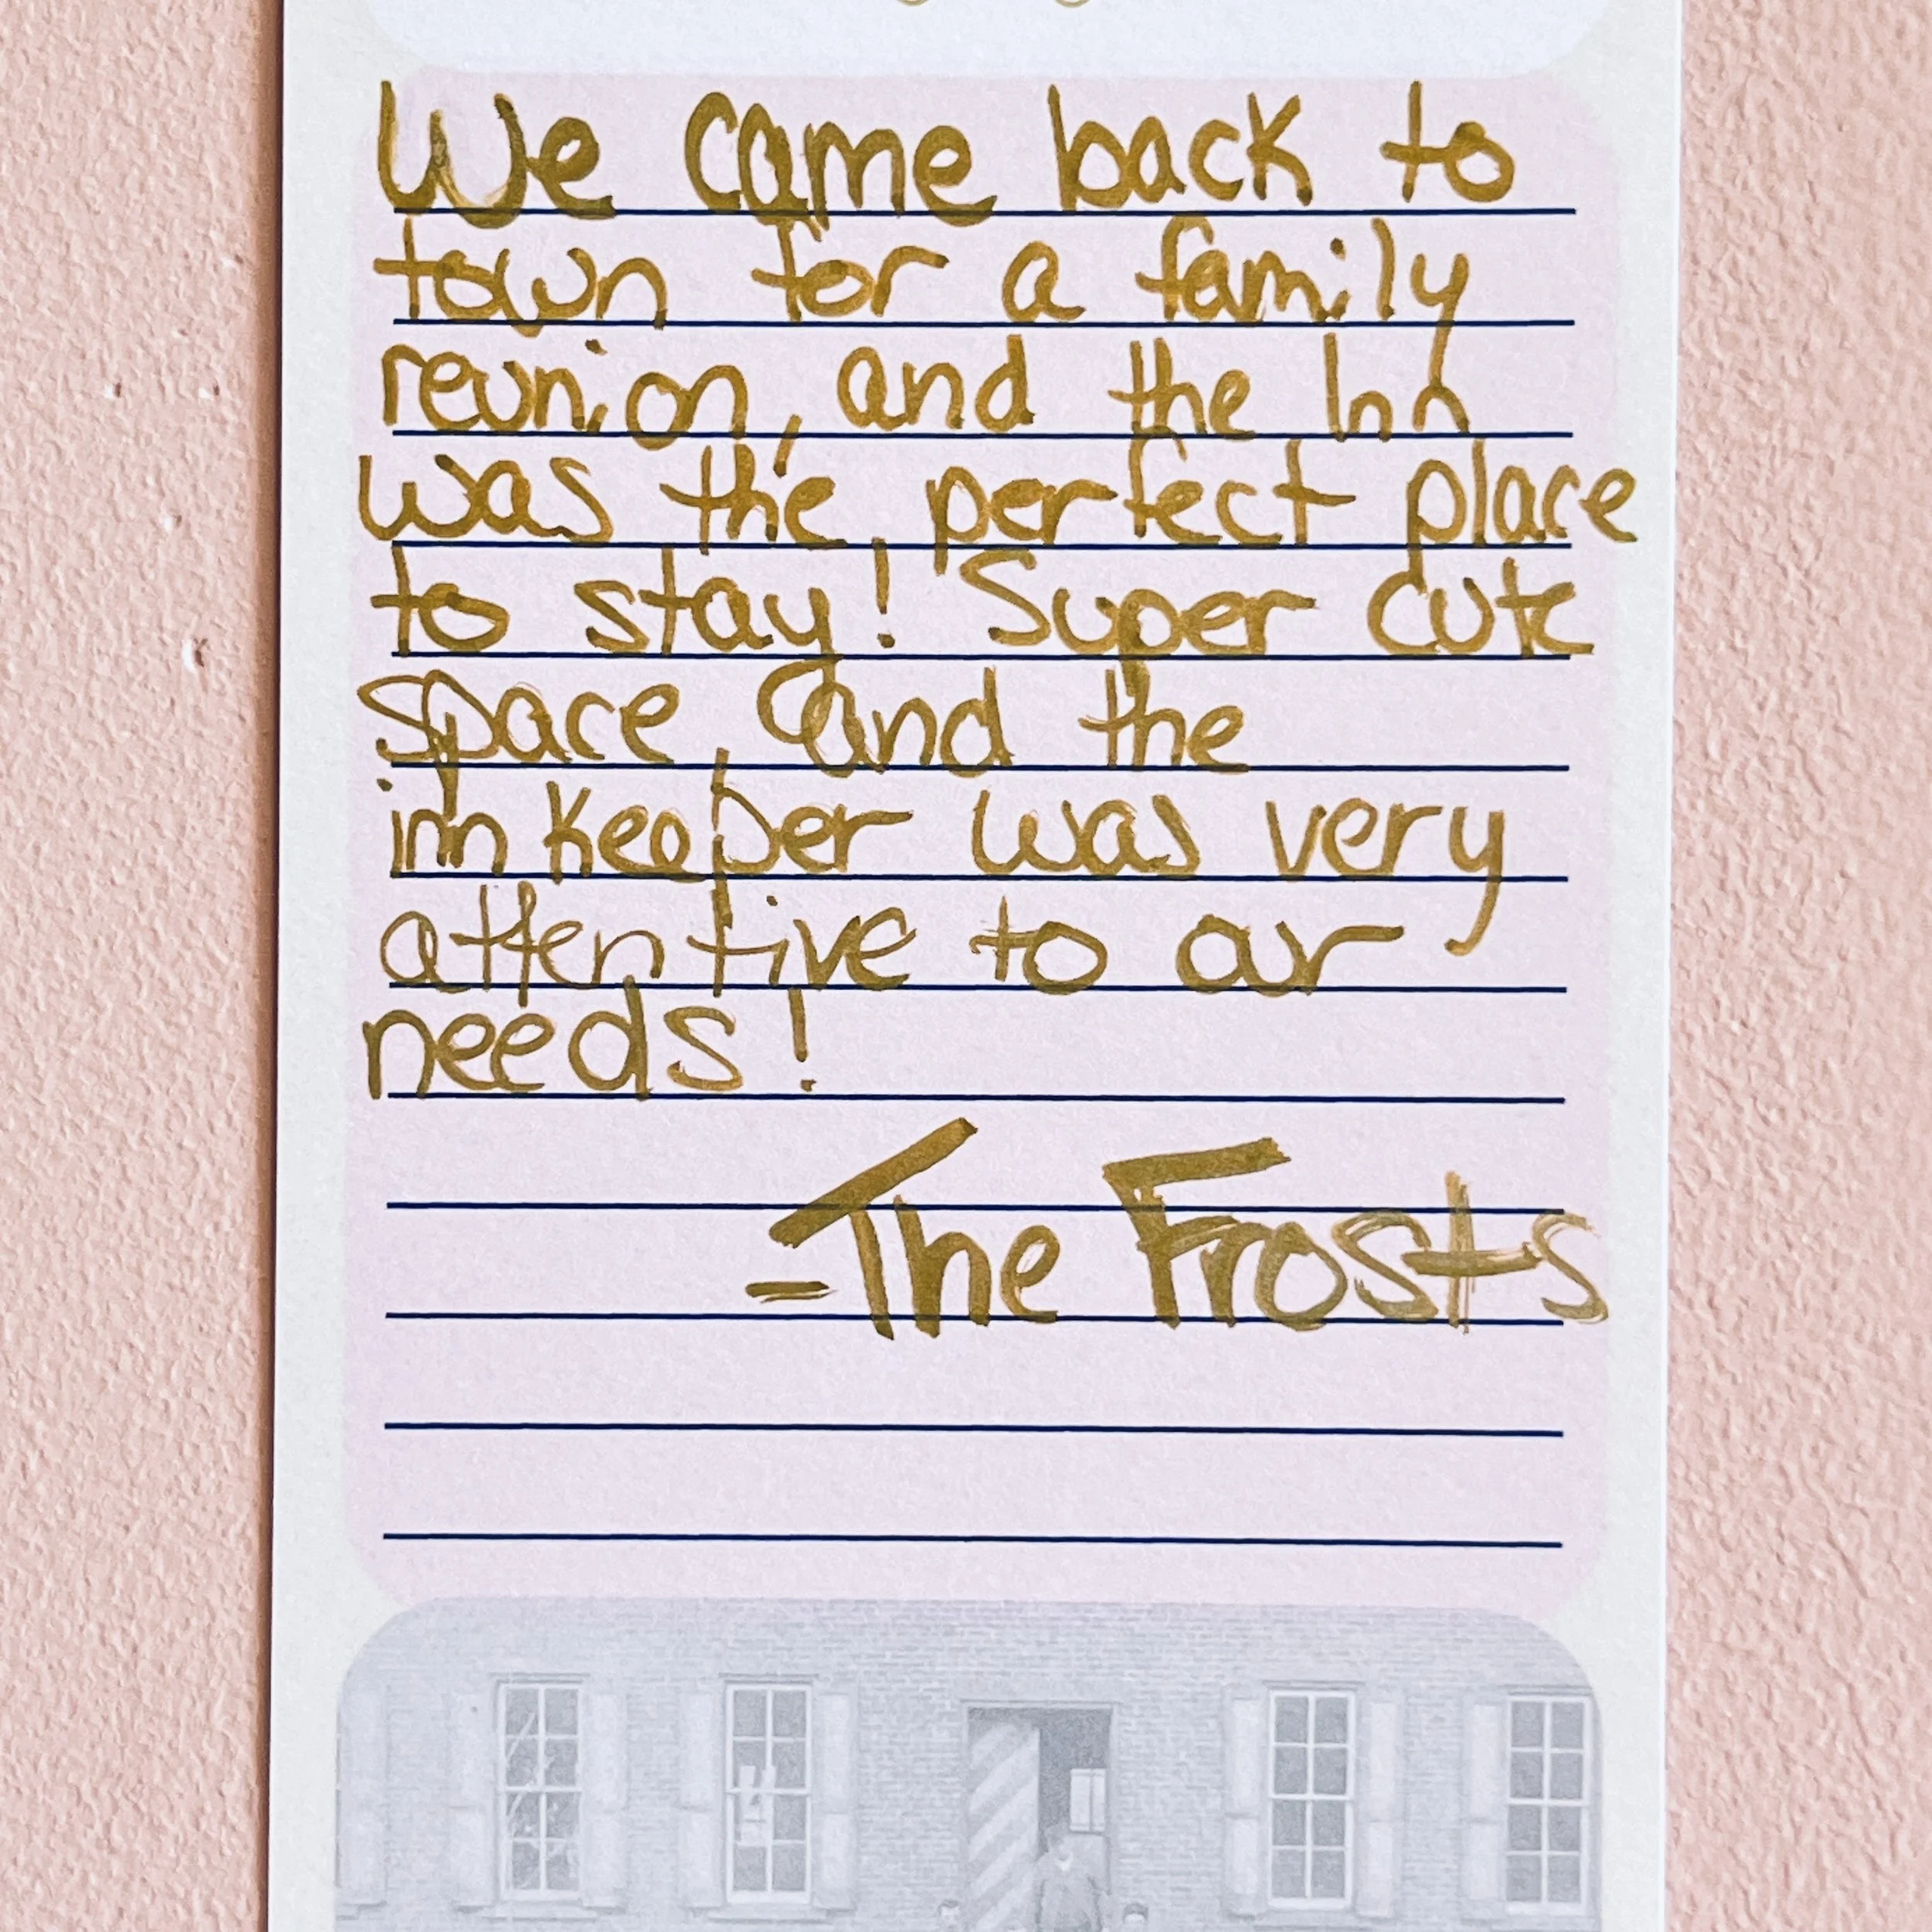 We came back to
town for a family
reunion, and the Inn
was the perfect place
to stay! Super cute
space, and the
innkeeper was very
attentive to our
needs!
-The Frosts